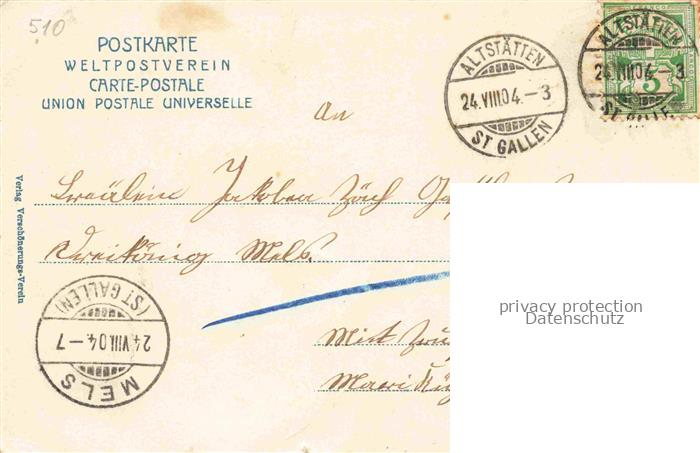 510
POSTKARTE
WELTPOSTVEREIN
CARTE-POSTALE
UNION POSTALE UNIVERSELLE
ALTSTÄTTEN
24.VIII.04.–3
ST GALLEN
ALTSTÄTTEN
24.VIII.04.–3
5
An
Fräulein Jakobea Zäch
Dreikönig Mels.
Verlag Verschönerungs-Verein
(ST GALLEN)
24.VIII.04–7
MELS
privacy protection
Datenschutz